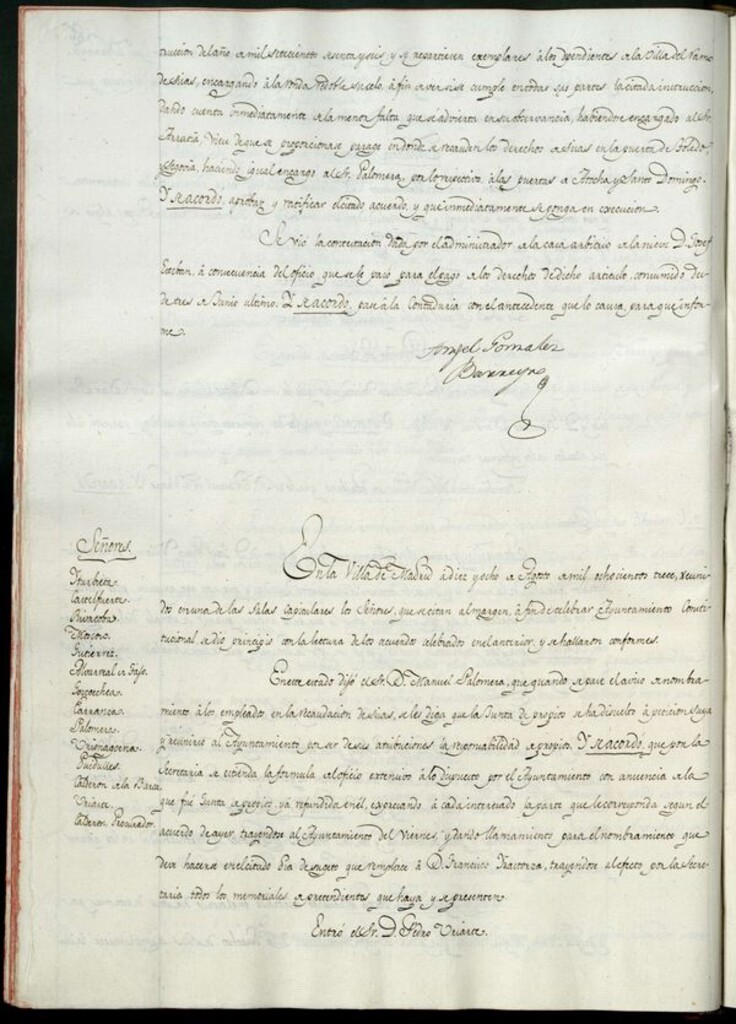 truccion del año de mil setecientos sesenta y seis y se repartiesen exemplares à los dependientes de la Villa del Ramo
de sisas, encargando à la ronda redoble su celo, à fin de ver si se cumple en todas sus partes la citada instruccion,
dando cuenta inmediatamente de la menor falta que se advierta en su observancia, habiendose encargado al Sr.
Arratia, viese de que se proporcionase parage en donde se recauden los derechos de sisas en la puerta de Toledo
y Segovia, haciendo igual encargo al Sr. Palomera, por lo respectivo, à las puertas de Atocha y Santo Domingo.
Y se acordó, aprobar y ratificar el citado acuerdo, y que inmediatamente se ponga en execucion.
Se vió la contextacion dada por el administrador de la casa arbitrio de la nieve D. Josef
Esteban, à consecuencia del oficio, que se le pasó para el pago de los derechos de dicho articulo, consumido des-
de tres de Junio ultimo. Y se acordó, pase à la Contaduria con el antecedente que lo causa, para que infor-
me.
Angel Gonzalez
Barreyro
Señores.
Yturbieta.
Castelfuerte.
Rivacoba.
Moscoso.
Gutierrez.
Monrreal
Goycoechea.
Carranza.
Palomera.
Urismaçena.
Calderon de la Barca
Uriarte.
Calderon Procurador.
En la Villa de Madrid à diez y ocho de Agosto de mil ochocientos trece, reuni-
dos en una de las Salas capitulares los Señores, que se citan al margen, à fin de celebrar Ayuntamiento Consti-
tucional se dió principio con la lectura de los acuerdos celebrados en el anterior, y se hallaron conformes.
En este estado dijó el Sr. D. Manuel Palomera, que quando se pase el aviso de nombra-
miento à los empleados en la recaudacion de sisas, se les diga que la Junta de propios se ha disuelto à peticion suya
y reunirse al Ayuntamiento por ser de sus atribuciones la responsabilidad de propios. Y se acordó, que por la
Secretaria se estienda la formula del oficio extensivo à lo dispuesto por el Ayuntamiento con anuencia de la
que fué Junta de propios, yá refundida en él, expresando à cada interesado la parte que le corresponda segun el
acuerdo de ayer, trayendose al Ayuntamiento del Viernes y dando llamamiento para el nombramiento que
deve hacerse en el citado dia de sugeto que remplace à D. Francisco, trayendose al efecto por la Secre-
taria todos los memoriales de pretendientes que haya y se presenten.
Entró el Sr. D. Pedro Uriarte.